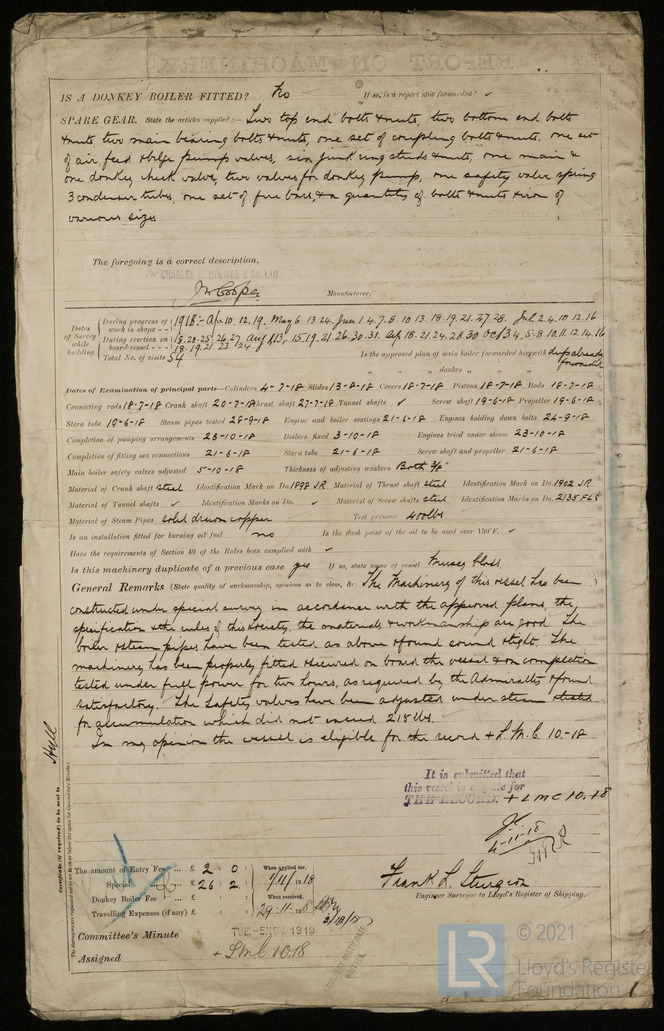 REPORT ON MACHINERY
IS A DONKEY BOILER FITTED? No If so, is a report now forwarded? ✓
SPARE GEAR. State the articles supplied:— Two top end bolts & nuts, two bottom end bolts
& nuts, two main bearing bolts & nuts, one set of coupling bolts & nuts, one set
of air, feed & bilge pump valves, six junk ring studs & nuts, one main &
one donkey check valve, two valves for donkey pump, one safety valve spring
3 condenser tubes, one set of fire bars, & a quantity of bolts & nuts & iron of
various sizes
The foregoing is a correct description,
CHARLES D. HOLMES & CO. LTD.
Manufacturer.
Dates of Survey while building
During progress of work in shops - - 1918:- Apr 10. 12. 19. May 6. 13. 24. Jun 1. 4. 7. 8. 10. 13. 18. 19. 21. 27. 28. Jul 2. 4. 10. 12. 16
During erection on board vessel - - - 18. 20. 25. 26. 27 Aug 13. 15. 19. 21. 26. 30. 31. Sep 18. 21. 24. 28. 30 Oct 3. 4. 5. 8. 10. 11. 12. 14. 16
18. 19. 21. 23. 24
Total No. of visits 54 Is the approved plan of main boiler forwarded herewith drop already forwarded
" " " donkey " " "
Dates of Examination of principal parts—Cylinders 4-7-18 Slides 13-8-18 Covers 18-7-18 Pistons 18-7-18 Rods 18-7-18
Connecting rods 18-7-18 Crank shaft 20-7-18 Thrust shaft 27-7-18 Tunnel shafts ✓ Screw shaft 19-6-18 Propeller 19-6-18
Stern tube 19-6-18 Steam pipes tested 28-9-18 Engine and boiler seatings 21-6-18 Engines holding down bolts 24-9-18
Completion of pumping arrangements 23-10-18 Boilers fixed 3-10-18 Engines tried under steam 23-10-18
Completion of fitting sea connections 21-6-18 Stern tube 21-6-18 Screw shaft and propeller 21-6-18
Main boiler safety valves adjusted 5-10-18 Thickness of adjusting washers Both 3/8"
Material of Crank shaft steel Identification Mark on Do. 1898 JR Material of Thrust shaft steel Identification Mark on Do. 1902 JR
Material of Tunnel shafts ✓ Identification Marks on Do. ✓ Material of Screw shafts steel Identification Marks on Do. 2135 FLS
Material of Steam Pipes solid drawn copper Test pressure 400 lbs
Is an installation fitted for burning oil fuel no Is the flash point of the oil to be used over 150°F. ✓
Have the requirements of Section 49 of the Rules been complied with ✓
Is this machinery duplicate of a previous case yes If so, state name of vessel Mersey Class.
General Remarks (State quality of workmanship, opinions as to class, &c. The Machinery of this vessel has been
constructed under special survey in accordance with the approved plans, the
specification & the rules of this Society, the materials & workmanship are good. The
boiler & steam pipes have been tested as above & found sound & tight. The
machinery has been properly fitted & secured on board the vessel & on completion
tested under full power for two hours, as required by the Admiralty & found
satisfactory. The safety valves have been adjusted under steam & tested
for accumulation which did not exceed 215 lbs.
In my opinion the vessel is eligible for the record + L.M.C. 10-18
Hull
Certificate (if required) to be sent to
It is submitted that
this vessel is eligible for
THE RECORD. + LMC 10.18
4-11-18
The amount of Entry Fee .. £ 2 : 0 : When applied for,
Special .. £ 26 : 2 : 1/11/1918
Donkey Boiler Fee .. £ : : When received,
Travelling Expenses (if any) £ : : 29-11-18
Frank L. Sturgeon
Engineer Surveyor to Lloyd's Register of Shipping.
Committee's Minute TUE-5 NOV 1918
Assigned + L.M.C. 10.18
LR
© 2021
Lloyd's Register
Foundation